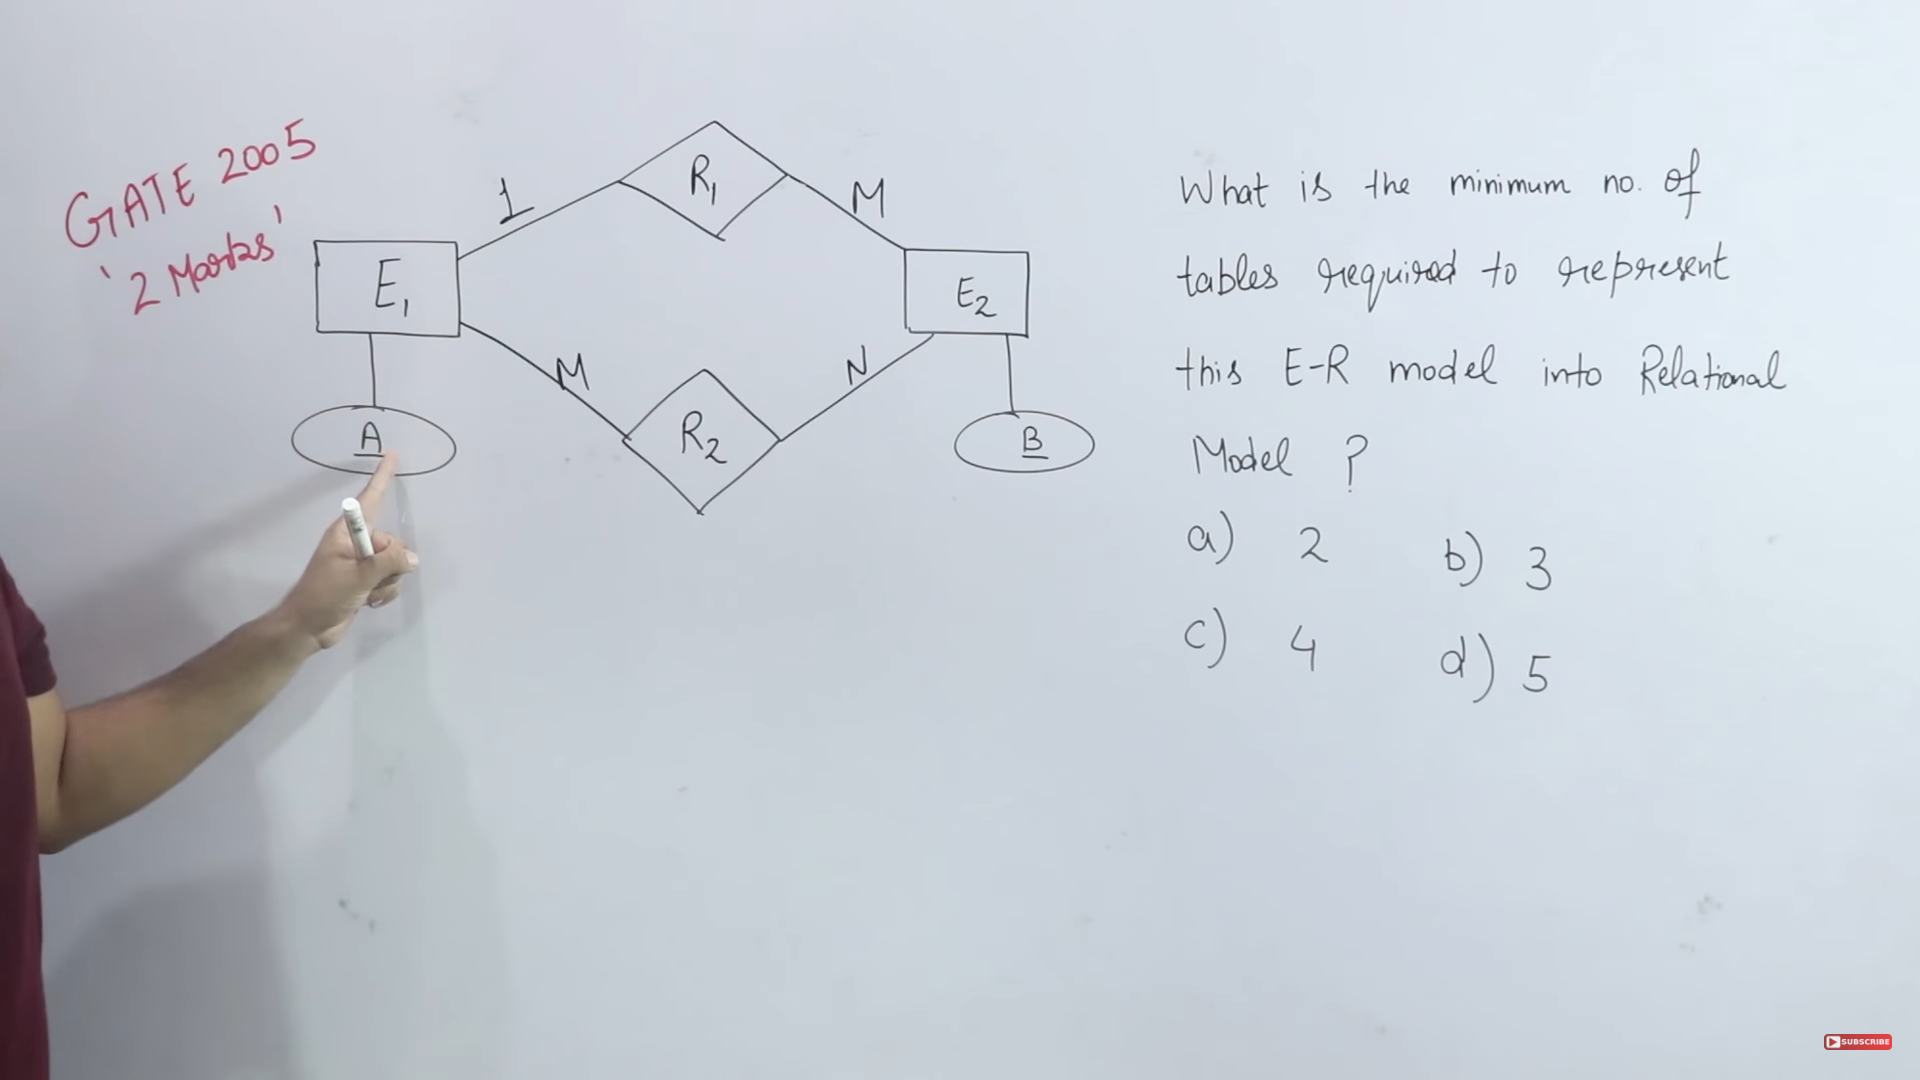 GATE 2005
'2 Marks'
R1
1
M
E1
E2
M
N
A
R2
B
What is the minimum no. of
tables required to represent
this E-R model into Relational
Model ?
a) 2 b) 3
c) 4 d) 5
SUBSCRIBE